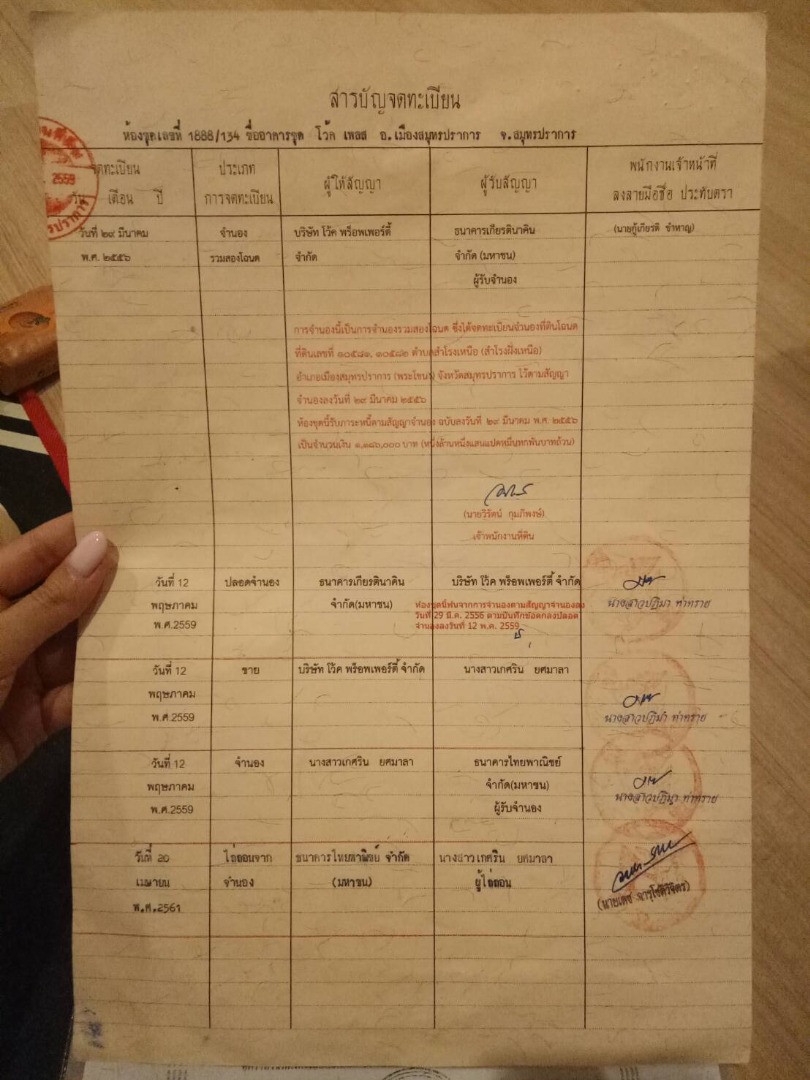 สารบัญจดทะเบียน
ห้องชุดเลขที่ 1888/134 ชื่ออาคารชุด โว้ค เพลส อ.เมืองสมุทรปราการ จ.สมุทรปราการ
จดทะเบียน
วัน เดือน ปี
ประเภท
การจดทะเบียน
ผู้ให้สัญญา
ผู้รับสัญญา
พนักงานเจ้าหน้าที่
ลงลายมือชื่อ ประทับตรา
2559
วันที่ ๒๙ มีนาคม
พ.ศ. ๒๕๕๖
จำนอง
รวมสองโฉนด
บริษัท โว้ค พร็อพเพอร์ตี้
จำกัด
ธนาคารเกียรตินาคิน
จำกัด (มหาชน)
ผู้รับจำนอง
(นายกู้เกียรติ ชำหาญ)
การจำนองนี้เป็นการจำนองรวมสองโฉนด ซึ่งได้จดทะเบียนจำนองที่ดินโฉนด
ที่ดินเลขที่ ๑๐๕๘๑, ๑๐๕๘๒ ตำบลสำโรงเหนือ (สำโรงฝั่งเหนือ)
อำเภอเมืองสมุทรปราการ (พระโขนง) จังหวัดสมุทรปราการ ไว้ตามสัญญา
จำนองลงวันที่ ๒๙ มีนาคม ๒๕๕๖
ห้องชุดนี้รับภาระหนี้ตามสัญญาจำนอง ฉบับลงวันที่ ๒๙ มีนาคม พ.ศ. ๒๕๕๖
เป็นจำนวนเงิน ๑,๑๘๖,๐๐๐ บาท (หนึ่งล้านหนึ่งแสนแปดหมื่นหกพันบาทถ้วน)
(นายวิรัตน์ กุมภิพงษ์)
เจ้าพนักงานที่ดิน
วันที่ 12
พฤษภาคม
พ.ศ.2559
ปลอดจำนอง
ธนาคารเกียรตินาคิน
จำกัด(มหาชน)
บริษัท โว้ค พร็อพเพอร์ตี้ จำกัด
ห้องชุดนี้พ้นจากการจำนองตามสัญญาจำนองลง
วันที่ 29 มี.ค. 2556 ตามบันทึกข้อตกลงปลอด
จำนองลงวันที่ 12 พ.ค. 2559
นางสาวปฏิมา ท่าทราย
วันที่ 12
พฤษภาคม
พ.ศ.2559
ขาย
บริษัท โว้ค พร็อพเพอร์ตี้ จำกัด
นางสาวเกศริน ยศมาลา
นางสาวปฏิมา ท่าทราย
วันที่ 12
พฤษภาคม
พ.ศ.2559
จำนอง
นางสาวเกศริน ยศมาลา
ธนาคารไทยพาณิชย์
จำกัด(มหาชน)
ผู้รับจำนอง
นางสาวปฏิมา ท่าทราย
วันที่ 20
เมษายน
พ.ศ.2561
ไถ่ถอนจาก
จำนอง
ธนาคารไทยพาณิชย์ จำกัด
(มหาชน)
นางสาวเกศริน ยศมาลา
ผู้ไถ่ถอน